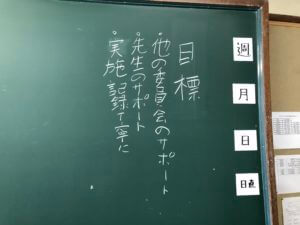 目標
・他の委員会のサポート
・先生のサポート
・実施記録丁寧に
週
月
日
日直